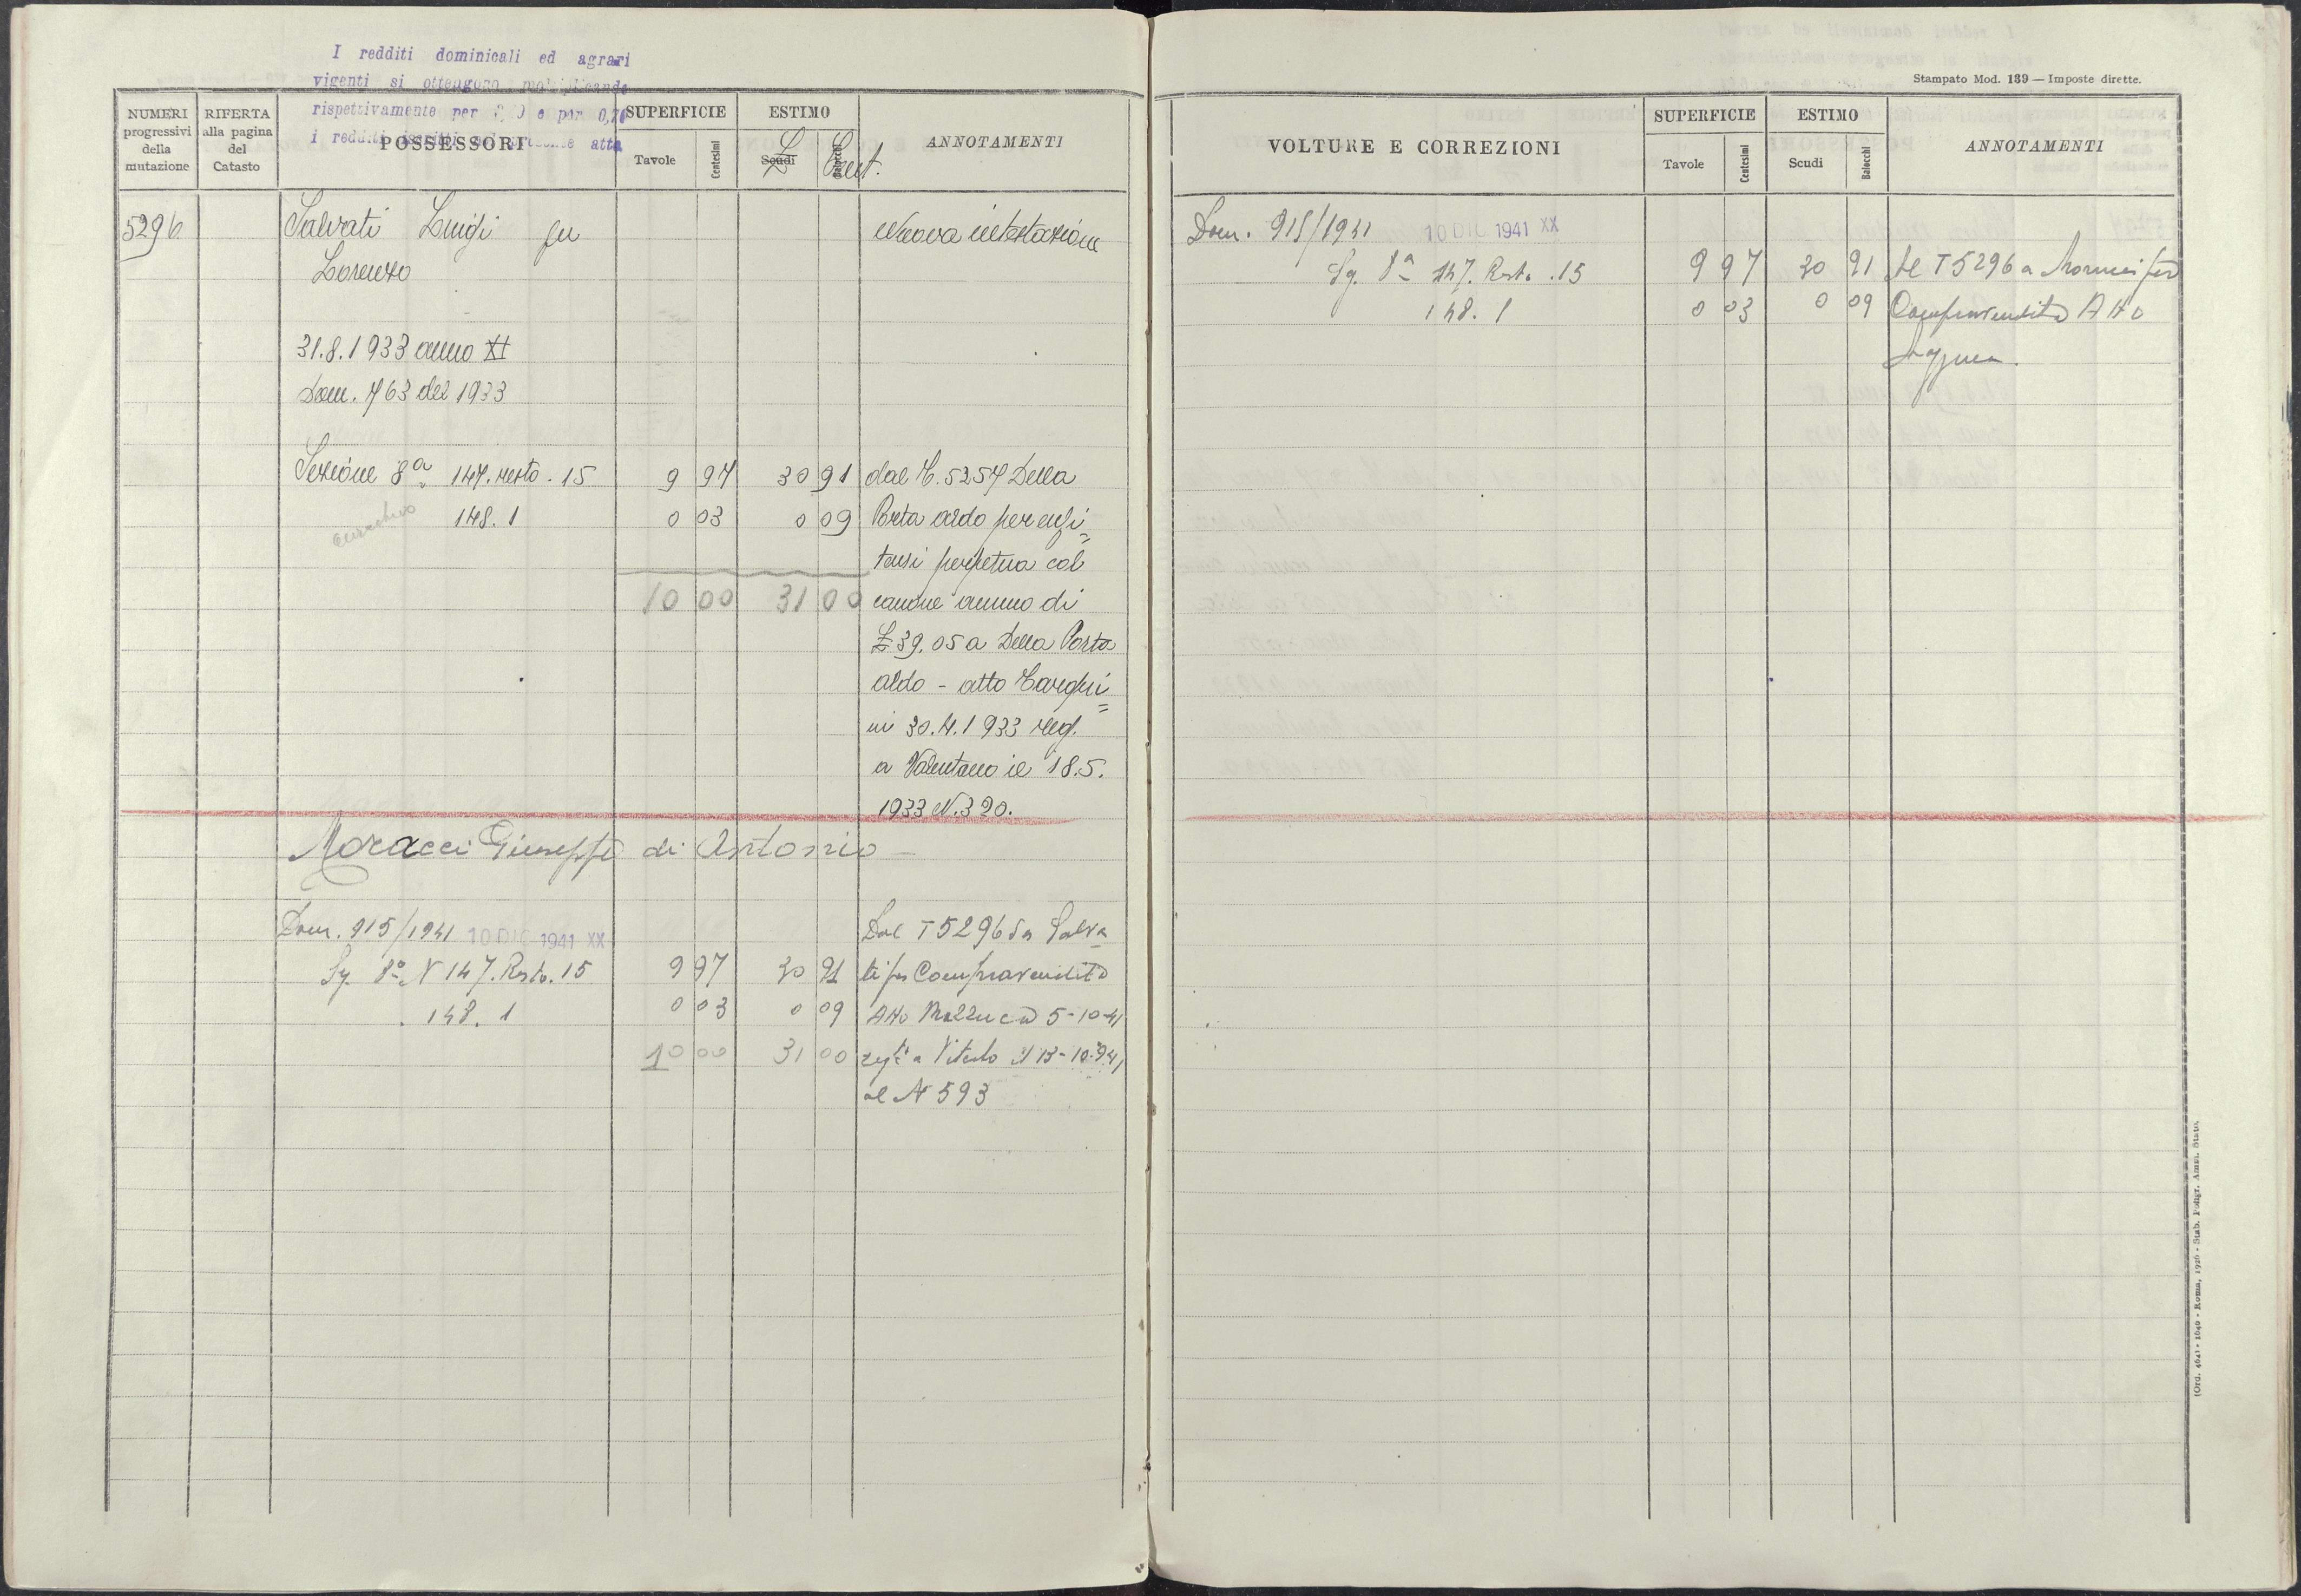 I redditi dominicali ed agrari
vigenti si ottengono moltiplicando
rispettivamente per e per 0,70
i redditi iscritti nel presente atto
NUMERI progressivi della mutazione
RIFERTA alla pagina del Catasto
POSSESSORI
SUPERFICIE
Tavole Centesimi
ESTIMO
Scudi Baiocchi
£ Cent.
ANNOTAMENTI
5296 Salvati Luigi fu Nuova intestazione
Lorenzo
31.8.1933 anno XI
Dom. 763 del 1933
Sezione 8a 147. resto. 15 9 97 30 91 dal T. 5257 Della
148. 1 0 03 0 09 Porta Aldo per enfi=
teusi perpetua col
10 00 31 00 canone annuo di
£ 39.05 a Della Porta
Aldo - atto Targhi=
ni 30.4.1933 reg.
a Valentano il 18.5.
1933 N. 320.
Moracci Giuseppe di Antonio
Dom. 915/1941 10 DIC 1941 XX Dal T 5296 da Salva
Sez. 8a N 147. Resto. 15 9 97 30 91 ti per Compravendita
148. 1 0 03 0 09 Atto 5-10-41
10 00 31 00 a Viterbo il 13-10-941
al N 593
Stampato Mod. 139 — Imposte dirette.
VOLTURE E CORREZIONI
SUPERFICIE
Tavole Centesimi
ESTIMO
Scudi Baiocchi
ANNOTAMENTI
Dom. 915/1941 10 DIC 1941 XX
Sez. 8a 147. Resto. 15 9 97 30 91 Al T 5296 a Moracci per
148. 1 0 03 0 09 Compravendita Atto
(Ord. 4641 - 1640 - Roma, 1926 - Stab. Poligr. Amm. Stato.